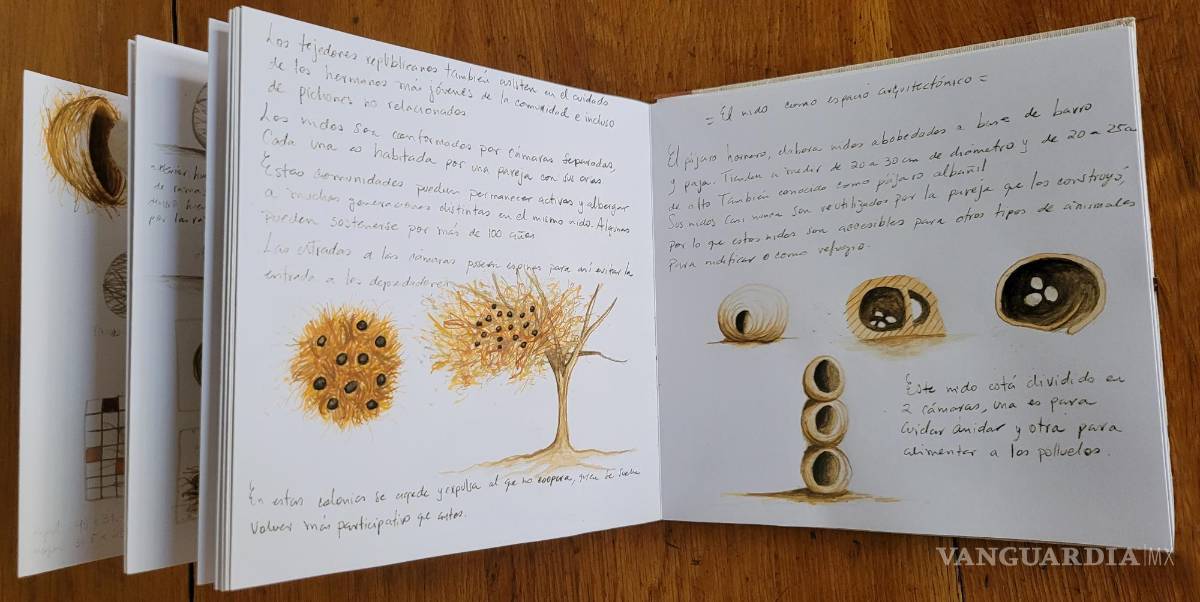 Los tejedores republicanos también asisten en el cuidado
de los hermanos más jóvenes de la comunidad e incluso
de pichones no relacionados.
Los nidos son conformados por cámaras separadas,
Cada una es habitada por una pareja con sus crías.
Estas comunidades pueden permanecer activas y albergar
a muchas generaciones distintas en el mismo nido. Algunas
pueden sostenerse por más de 100 años
Las entradas a las cámaras poseen espinas para así evitar la
entrada a los depredadores
En estas colonias se agrede y expulsa al que no coopera, quien de suele
volver más participativo que antes.
= El nido como espacio arquitectónico =
El pájaro hornero, elabora nidos abobedados a base de barro
y paja. Tienden a medir de 20 a 30 cm de diámetro y de 20 a 25 cm
de alto También conocido como pájaro albañil
Sus nidos casi nunca son reutilizados por la pareja que los construyó,
por lo que estos nidos son accesibles para otros tipos de animales
para nidificar o como refugio.
Este nido está dividido en
2 cámaras, una es para
cuidar anidar y otra para
alimentar a los polluelos.
VANGUARDIA MX